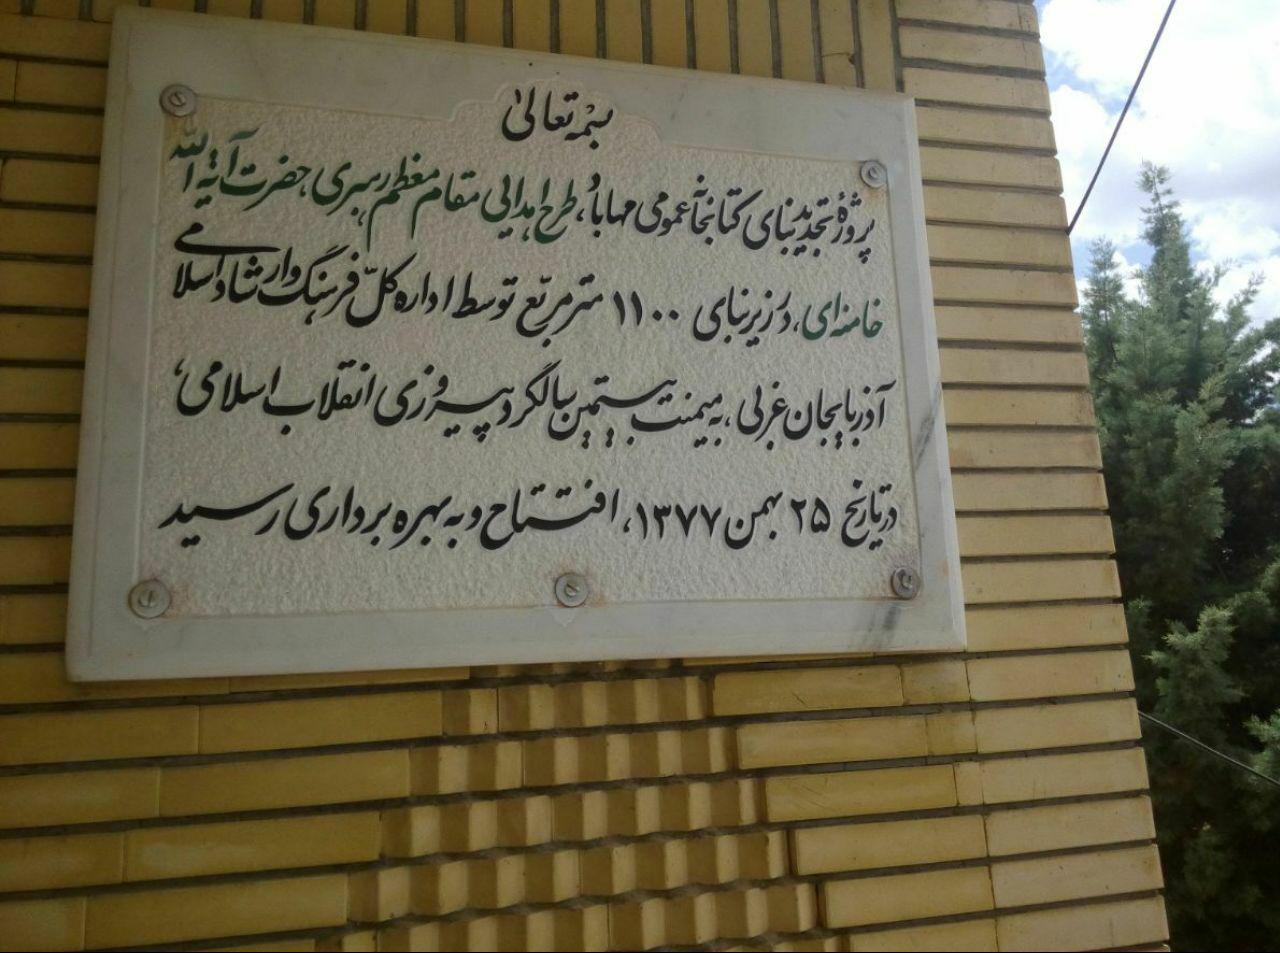 بسمه تعالیٰ
پروژهٔ تجدید بنای کتابخانهٔ عمومی مهاباد، طرح اهدایی مقام معظم رهبری، حضرت آیة الله
خامنه‌ای، در زیربنای ۱۱۰۰ متر مربّع توسط اداره کلّ فرهنگ و ارشاد اسلامی
آذربایجان غربی، به میمنت بیستمین سالگرد پیروزی انقلاب اسلامی،
در تاریخ ۲۵ بهمن ۱۳۷۷، افتتاح و به بهره برداری رسید